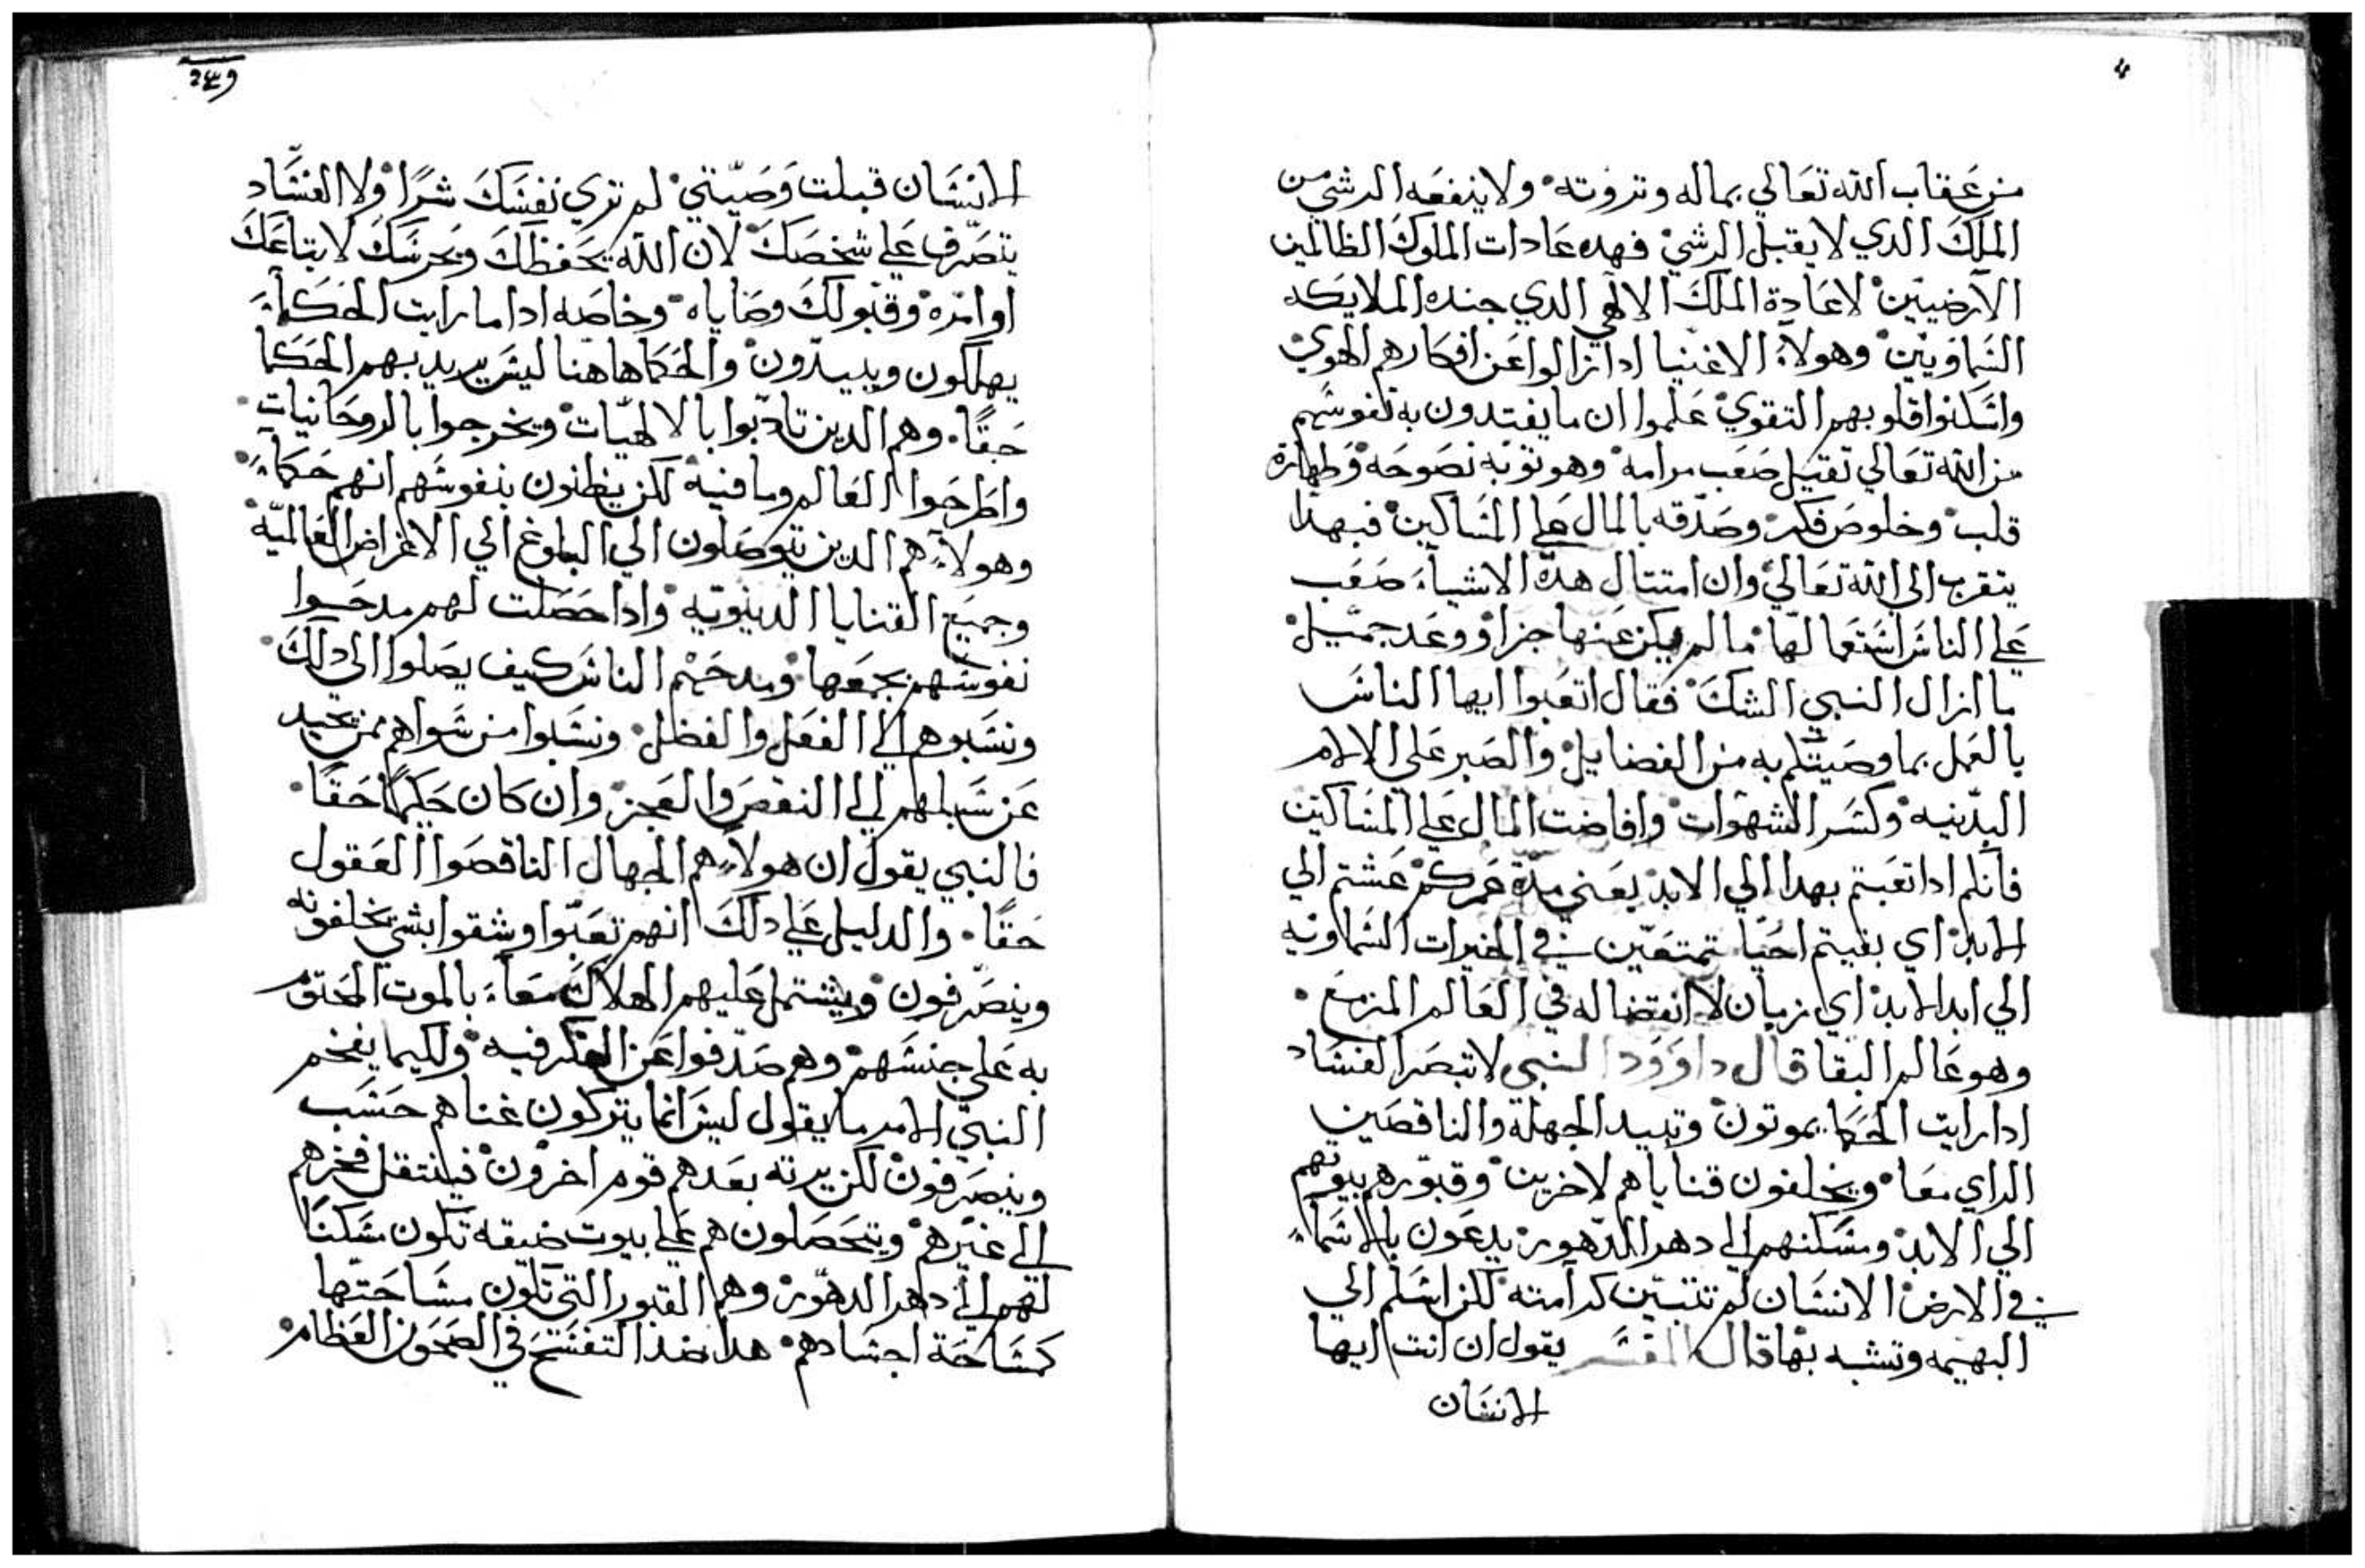 من عقاب الله تعالي بماله وثروته ولا ينفعه الرشي من
الملك الدي لا يقبل الرشي فهده عادات الملوك الظالمين
الارضيين لا عادة الملك الالهي الدي جنده الملايكه
السماويين وهولاء الاغنيا ادا زالوا عن افكارهم الهوي
واسكنوا قلوبهم التقوي علموا ان ما يفتدون به نفوسهم
من الله تعالي تقيل صعب مرامه وهو توبه نصوحه وطهارة
قلب وخلوص فكر وصدقه بالمال علي المساكين فبهدا
يتقرب الي الله تعالي وان امتتال هده الاشياء صعب
علي الناس استعمالها ما لم يكن عنها جزا ووعد جميل
ما ازال النبي الشك فقال اتعبوا ايها الناس
بالعمل بما وصيتكم به من الفضايل والصبر علي الالام
البدنيه وكسر الشهوات وافاضت المال علي المساكين
فانكم ادا تعبتم بهدا الي الابد يعني مدة عمركم عشتم الي
الابد اي بقيتم احيا متمتعين في الخيرات السماويه
الي ابد الابد اي زمان لا انقضا له في العالم المزمع
وهو عالم البقا قال داوود النبي لا تبصر الفساد
ادا رايت الحكما يموتون وتبيد الجهله والناقصين
الراي معا ويخلفون قناياهم لاخرين وقبورهم بيوتهم
الي الابد ومسكنهم الي دهر الدهور يدعون بالاسماء
في الارض الانسان لم تتبين كرامته لكن اسلم الي
البهيمه وتشبه بها قال المفسر يقول ان انت ايها
الانسان
٢٤٩
الانسان قبلت وصيتي لم تري نفسك شرا ولا الفساد
يتصرف علي شخصك لان الله يحفظك ويحرسك لاتباعك
اوامره وقبولك وصاياه وخاصه ادا ما رايت الحكماء
يهلكون ويبيدون والحكما هاهنا ليس يريد بهم الحكما
حقا وهم الدين تادبوا بالالهيات ويخرجوا بالروحانيات
واطرحوا العالم وما فيه لكن يظنون بنفوسهم انهم حكماء
وهولاء هم الدين يتوصلون الي البلوغ الي الاغراض العالميه
وجميع القنايا الدنيويه وادا حصلت لهم مدحوا
نفوسهم بجمعها ومدحهم الناس كيف يصلوا الي دلك
ونسبوهم الي العقل والفظل ونسبوا من سواهم ممن يحيد
عن سبلهم الي النقص والعجز وان كان حكيما حقا
فالنبي يقول ان هولاء هم الجهال الناقصوا العقول
حقا والدليل علي دلك انهم تعبوا وشقوا بشي يخلفونه
وينصرفون ويشتمل عليهم الهلاك معاء بالموت المحتوم
به علي جنسهم وهم صدفوا عن الفكر فيه ولكيما يفخم
النبي الامر ما يقول ليس انما يتركون غناهم حسب
وينصرفون لكن يرته بعدهم قوم اخرون فينتقل فخرهم
الي غيرهم ويتحصلون هم علي بيوت ضيقه تكون مسكنا
لهم الي دهر الدهور وهم القبور التي تكون مساحتها
كمساحة اجسادهم هدا ضد التفسح في الصحون العظام